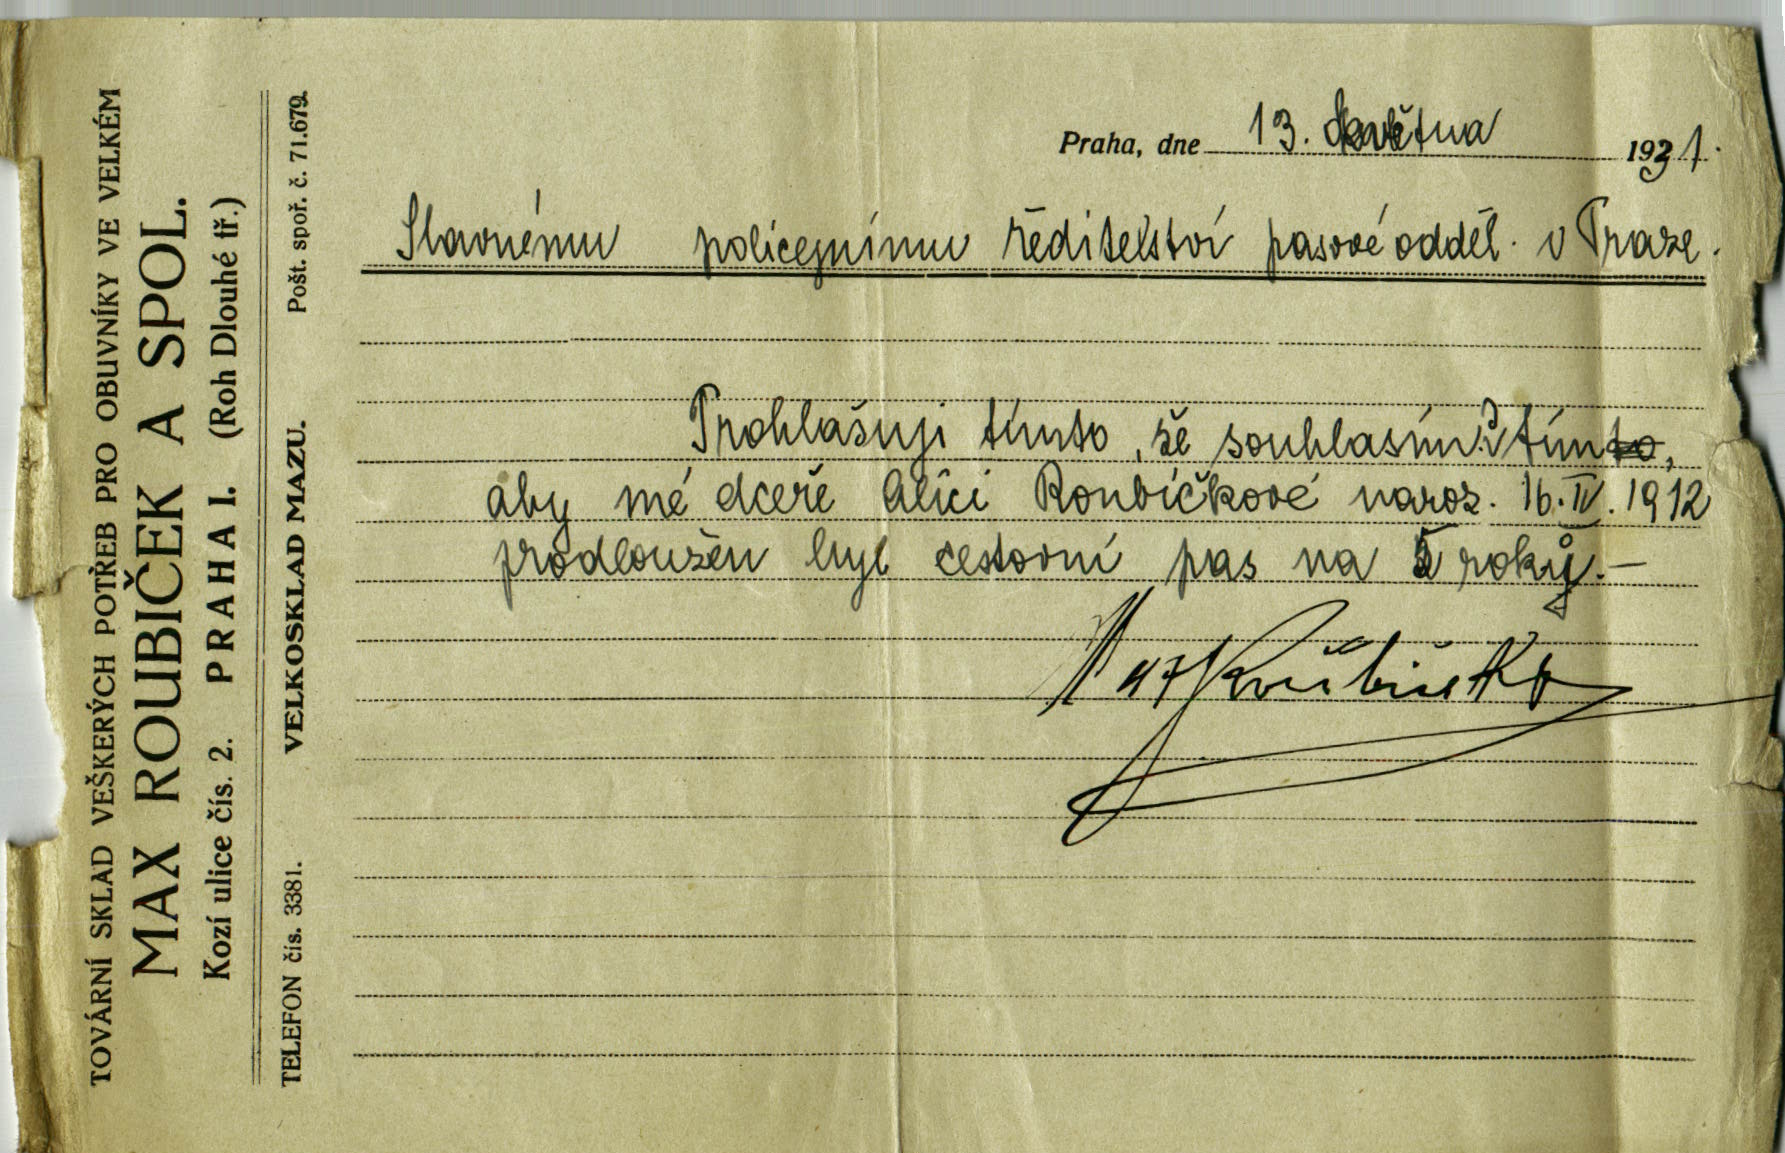 TOVÁRNÍ SKLAD VEŠKERÝCH POTŘEB PRO OBUVNÍKY VE VELKÉM
MAX ROUBIČEK A SPOL.
Kozí ulice čís. 2. PRAHA I. (Roh Dlouhé tř.)
TELEFON čís. 3381. VELKOSKLAD MAZU. Pošt. spoř. č. 71.679.
Praha, dne 13. května 1931.
Slavnému policejnímu ředitelství pasové odděl. v Praze.
Prohlašuji tímto, že souhlasím s tím,
aby mé dceři Alici Roubíčkové naroz. 16. IV. 1912
prodloužen byl cestovní pas na 5 roků.—
Max Roubiček